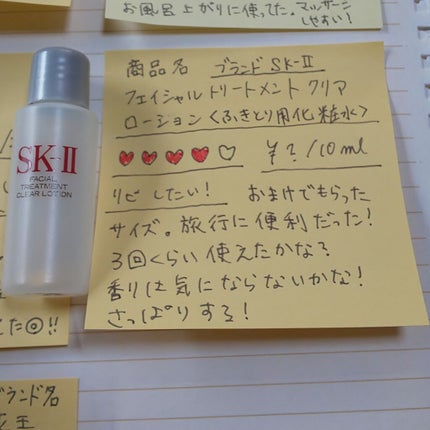 お風呂上がりに使ってた。マッサージ
しやすい!
商品名 ブランド SK-II
フェイシャル トリートメント クリア
ローション〈ふきとり用化粧水〉
♥♥♥♥♡ ¥?/10ml
リピしたい! おまけでもらった
サイズ。旅行に便利だった!
3回くらい使えたかな?
香りは気にならないかな!
さっぱりする!
SK-II
FACIAL
TREATMENT
CLEAR LOTION
た◎!!
ブランド名